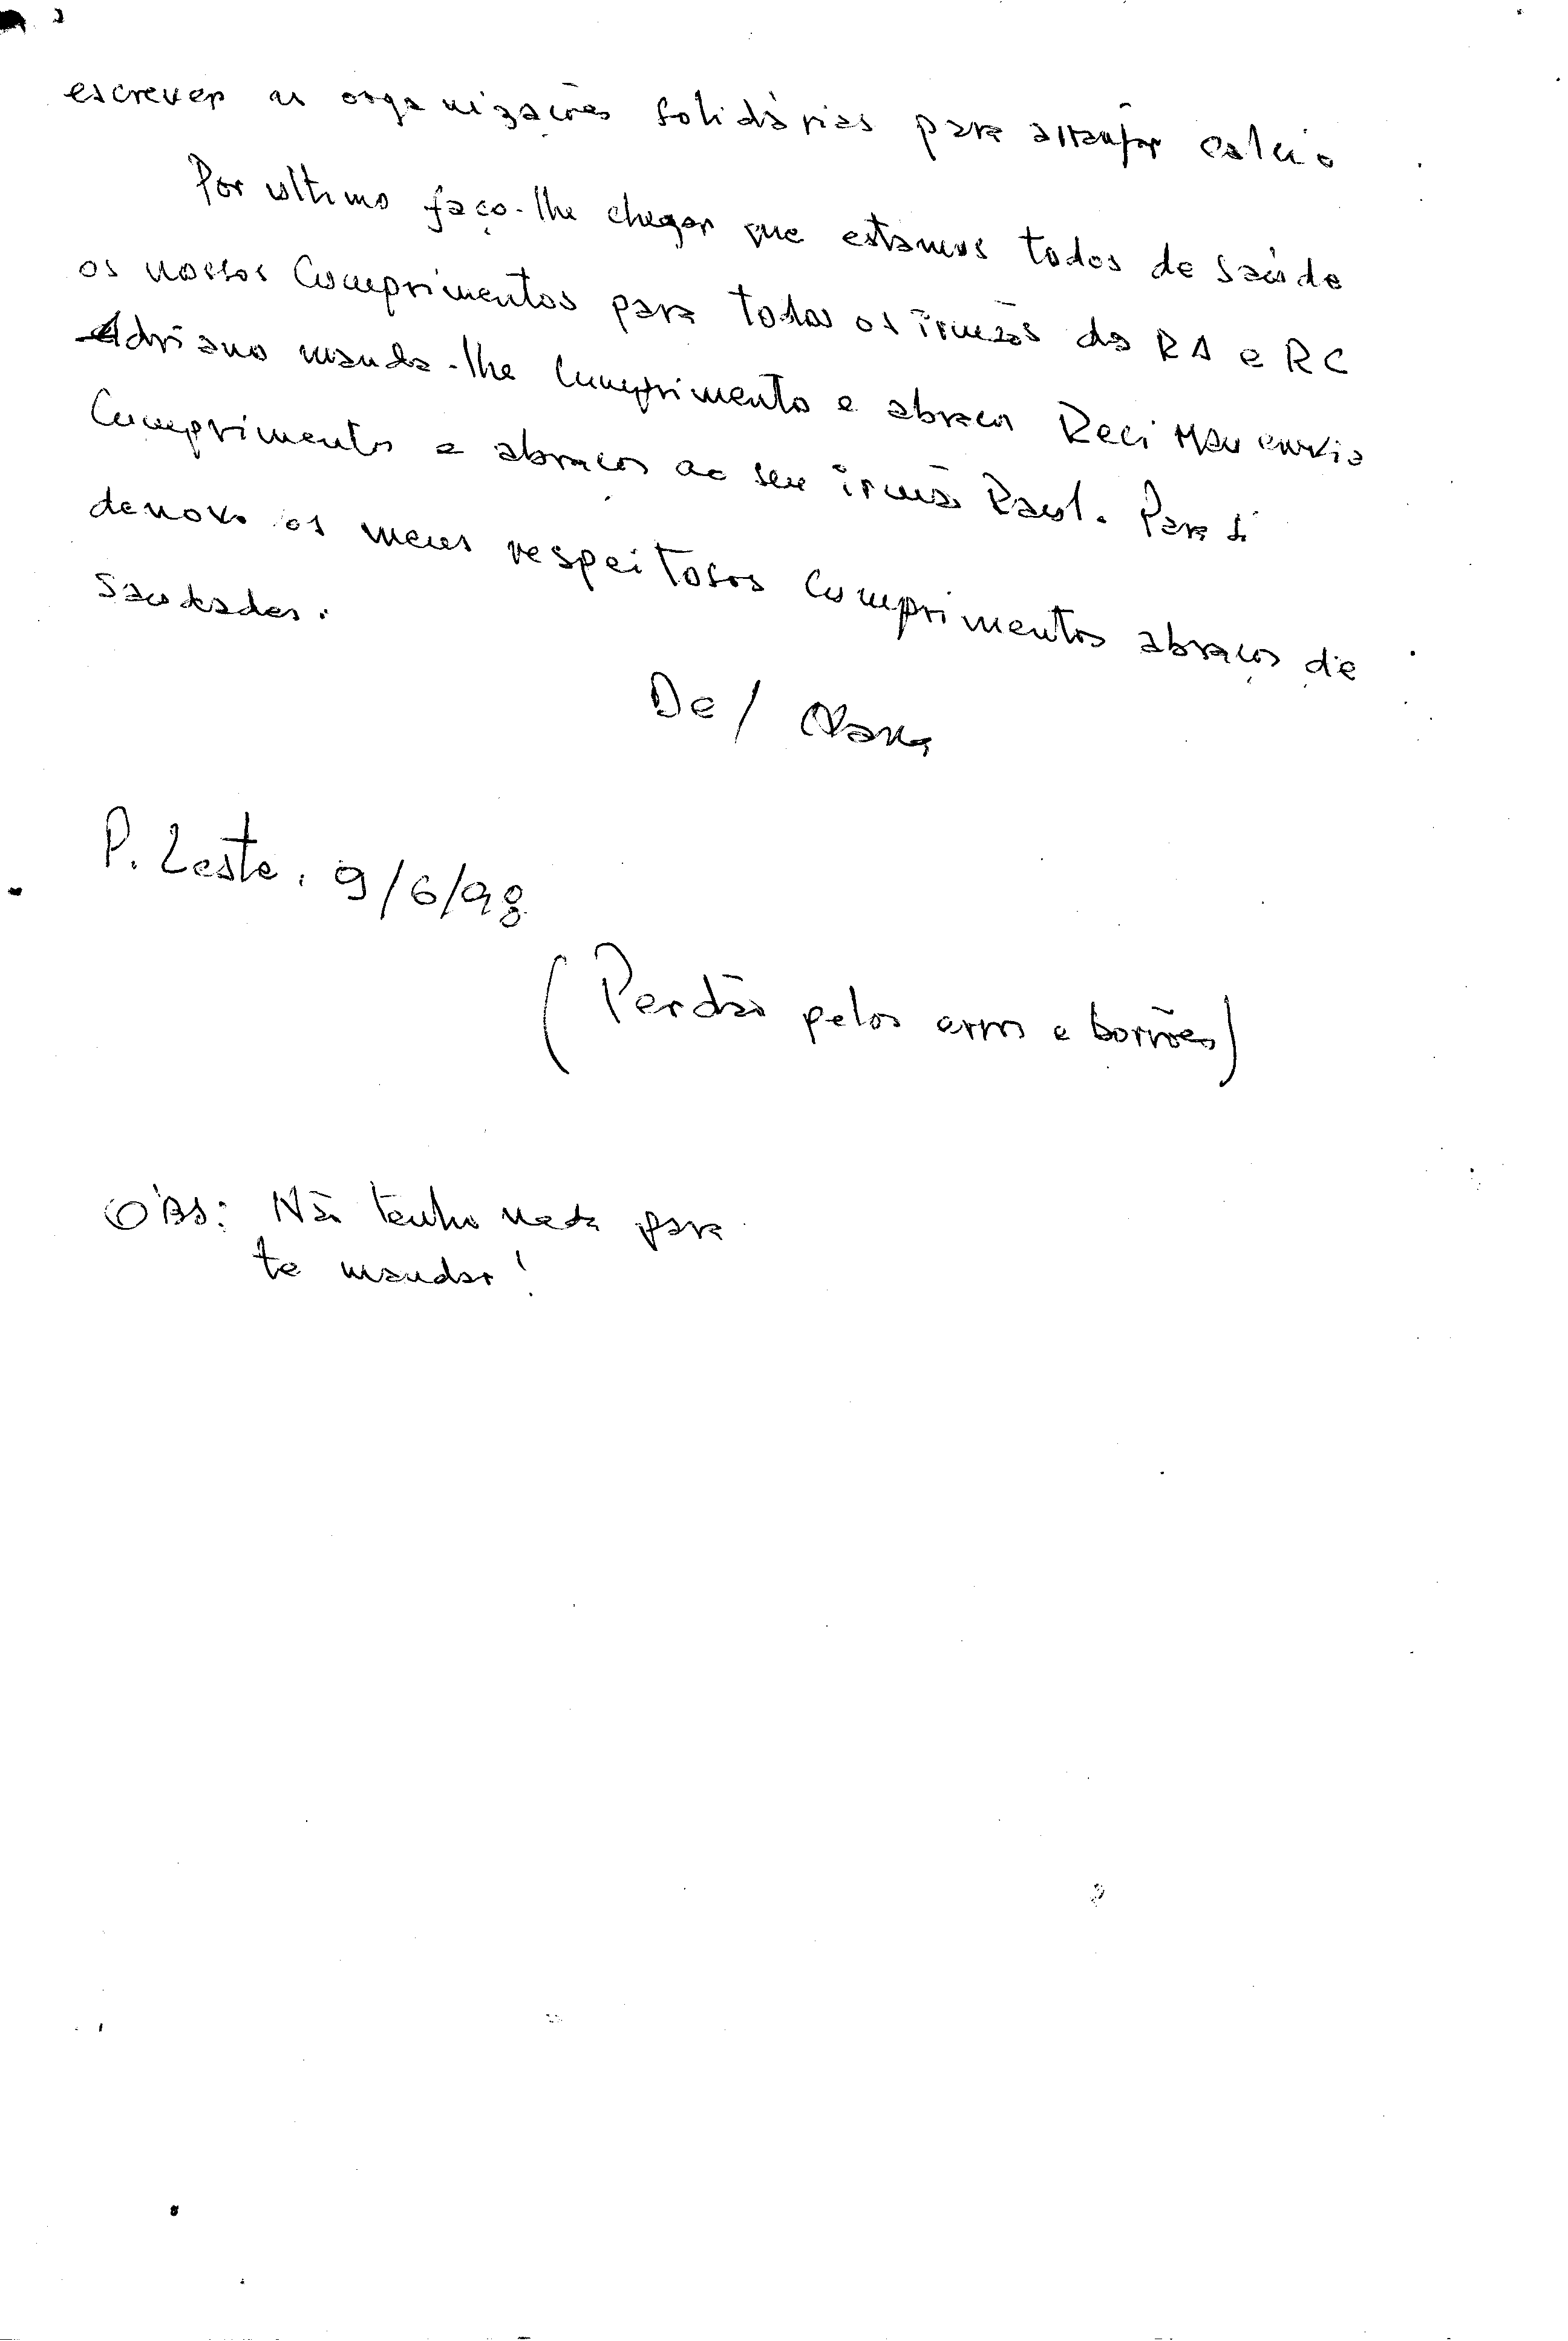 escrever as organizações solidárias para arranjar calcio
Por ultimo faço-lhe chegar que estamos todos de saúde
os nossos Cumprimentos para todos os irmãos da RA e RC
Adriano manda-lhe Cumprimento e abraços Reci Mau envia
Cumprimentos e abraços ao seu irmão Raul. Para si
denovo os meus respeitosos Cumprimentos abraços de
Saudades.
De/
P. Leste, 9/6/98
(Perdão pelos erros e borrões)
OBS: Não tenho nada para
te mandar!